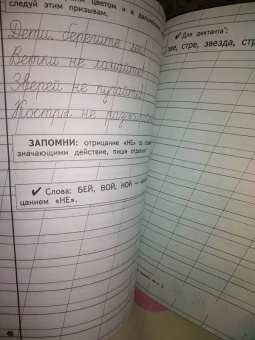 цветом и в дальне
следуй этим призывам.
Дети, берегите лес!
Ветки не ломайте!
Зверей не пугайте!
Костры не
ЗАПОМНИ: отрицание «НЕ» со
значающими действие, пиши отдельно
✔ Слова: БЕЙ, ВОЙ, НОЙ –
цанием «НЕ».
✔ Для диктанта:
зве, стре, звезда, стр